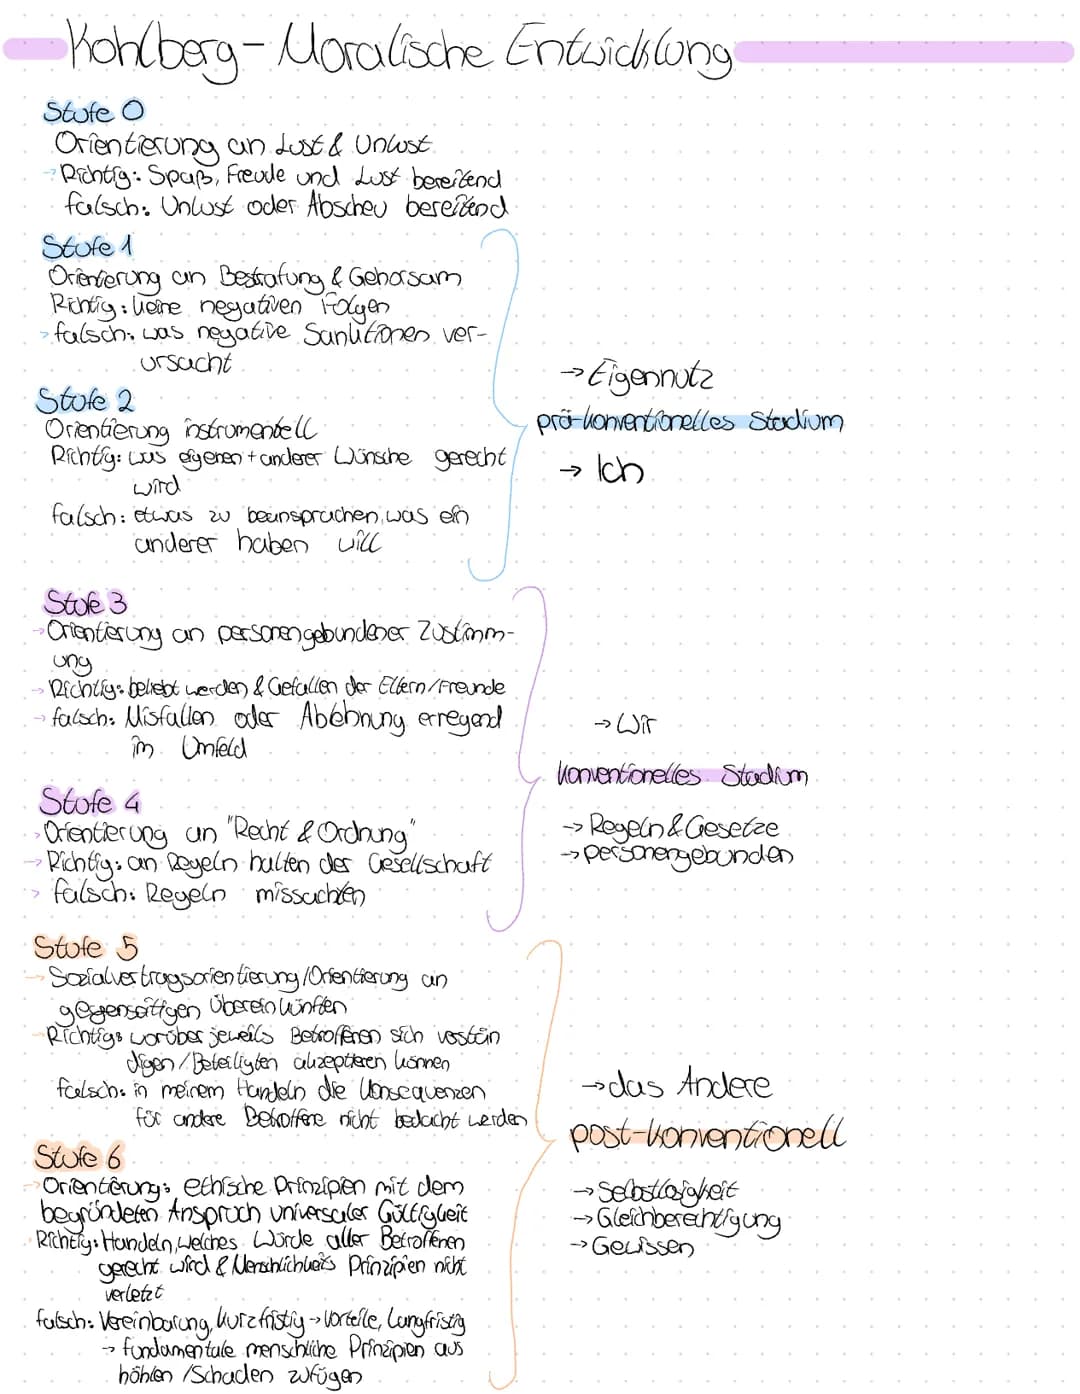 Kohlberg - Moralische Entwicklung
Stufe 0
Orientierung an Lust & Unlust
→ Richtig: Spaß, Freude und Lust bereitend
falsch: Unlust oder Abscheu bereitend
Stufe 1
Orientierung an Bestrafung & Gehorsam
Richtig: keine negativen Folgen
→ falsch: was negative Sanktionen ver-
ursacht
Stufe 2
Orientierung instrumentell
Richtig: was eigenen + anderer Wünsche gerecht
wird
falsch: etwas zu beanspruchen, was ein
anderer haben will
→ Eigennutz
prä-konventionelles Stadium
→ Ich
Stufe 3
→ Orientierung an personengebundener Zustimm-
ung
→ Richtig: beliebt werden & Gefallen der Eltern/Freunde
→ falsch: Misfallen oder Ablehnung erregend
im Umfeld
Stufe 4
→ Orientierung an "Recht & Ordnung"
→ Richtig: an Regeln halten der Gesellschaft
→ falsch: Regeln missachten
→ Wir
konventionelles Stadium
→ Regeln & Gesetze
→ personengebunden
Stufe 5
→ Sozialvertragsorientierung/Orientierung an
gegenseitigen Übereinkünften
Richtig: worüber jeweils Betroffenen sich verstän
digen / Beteiligten akzeptieren können
falsch: in meinem Handeln die Konsequenzen
für andere Betroffene nicht bedacht werden
Stufe 6
→ Orientierung: ethische Prinzipien mit dem
begründeten Anspruch universaler Gültigkeit
Richtig: Handeln, welches Würde aller Betroffenen
gerecht wird & Menschlichkeits Prinzipien nicht
verletzt
falsch: Vereinbarung, kurzfristig → Vorteile, Langfristig
→ fundamentale menschliche Prinzipien aus
höhlen / Schaden zufügen
→ das Andere
post-konventionell
→ Selbstlosigkeit
→ Gleichberechtigung
→ Gewissen